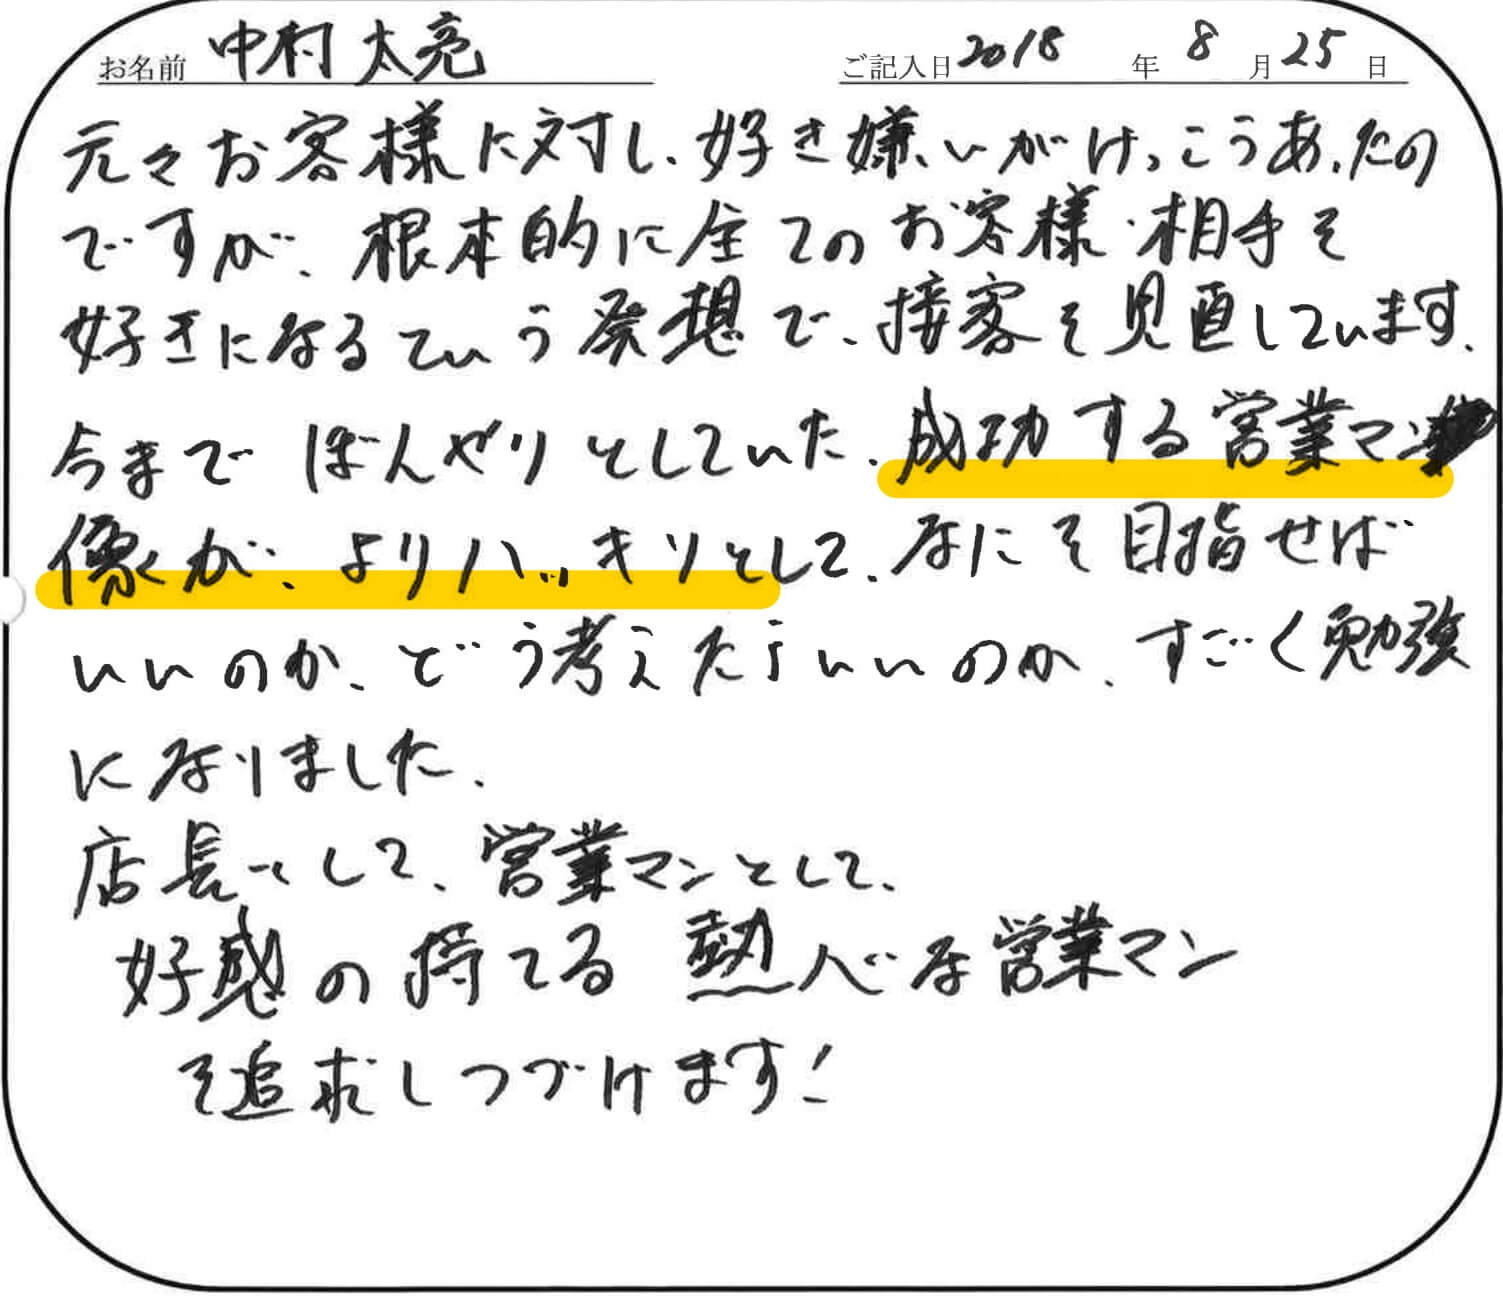 お名前 中村 太亮 ご記入日 2018 年 8 月 25 日
元々お客様に対し、好き嫌いがけっこうあったの
ですが、根本的に全てのお客様・相手を
好きになるていう発想で、接客を見直しています。
今まで ぼんやりとしていた、成功する営業マン
像が、よりハッキリとして、なにを目指せば
いいのか、どう考えたらいいのか、すごく勉強
になりました。
店長として、営業マンとして、
好感の持てる 熱心な営業マン
を追求しつづけます!